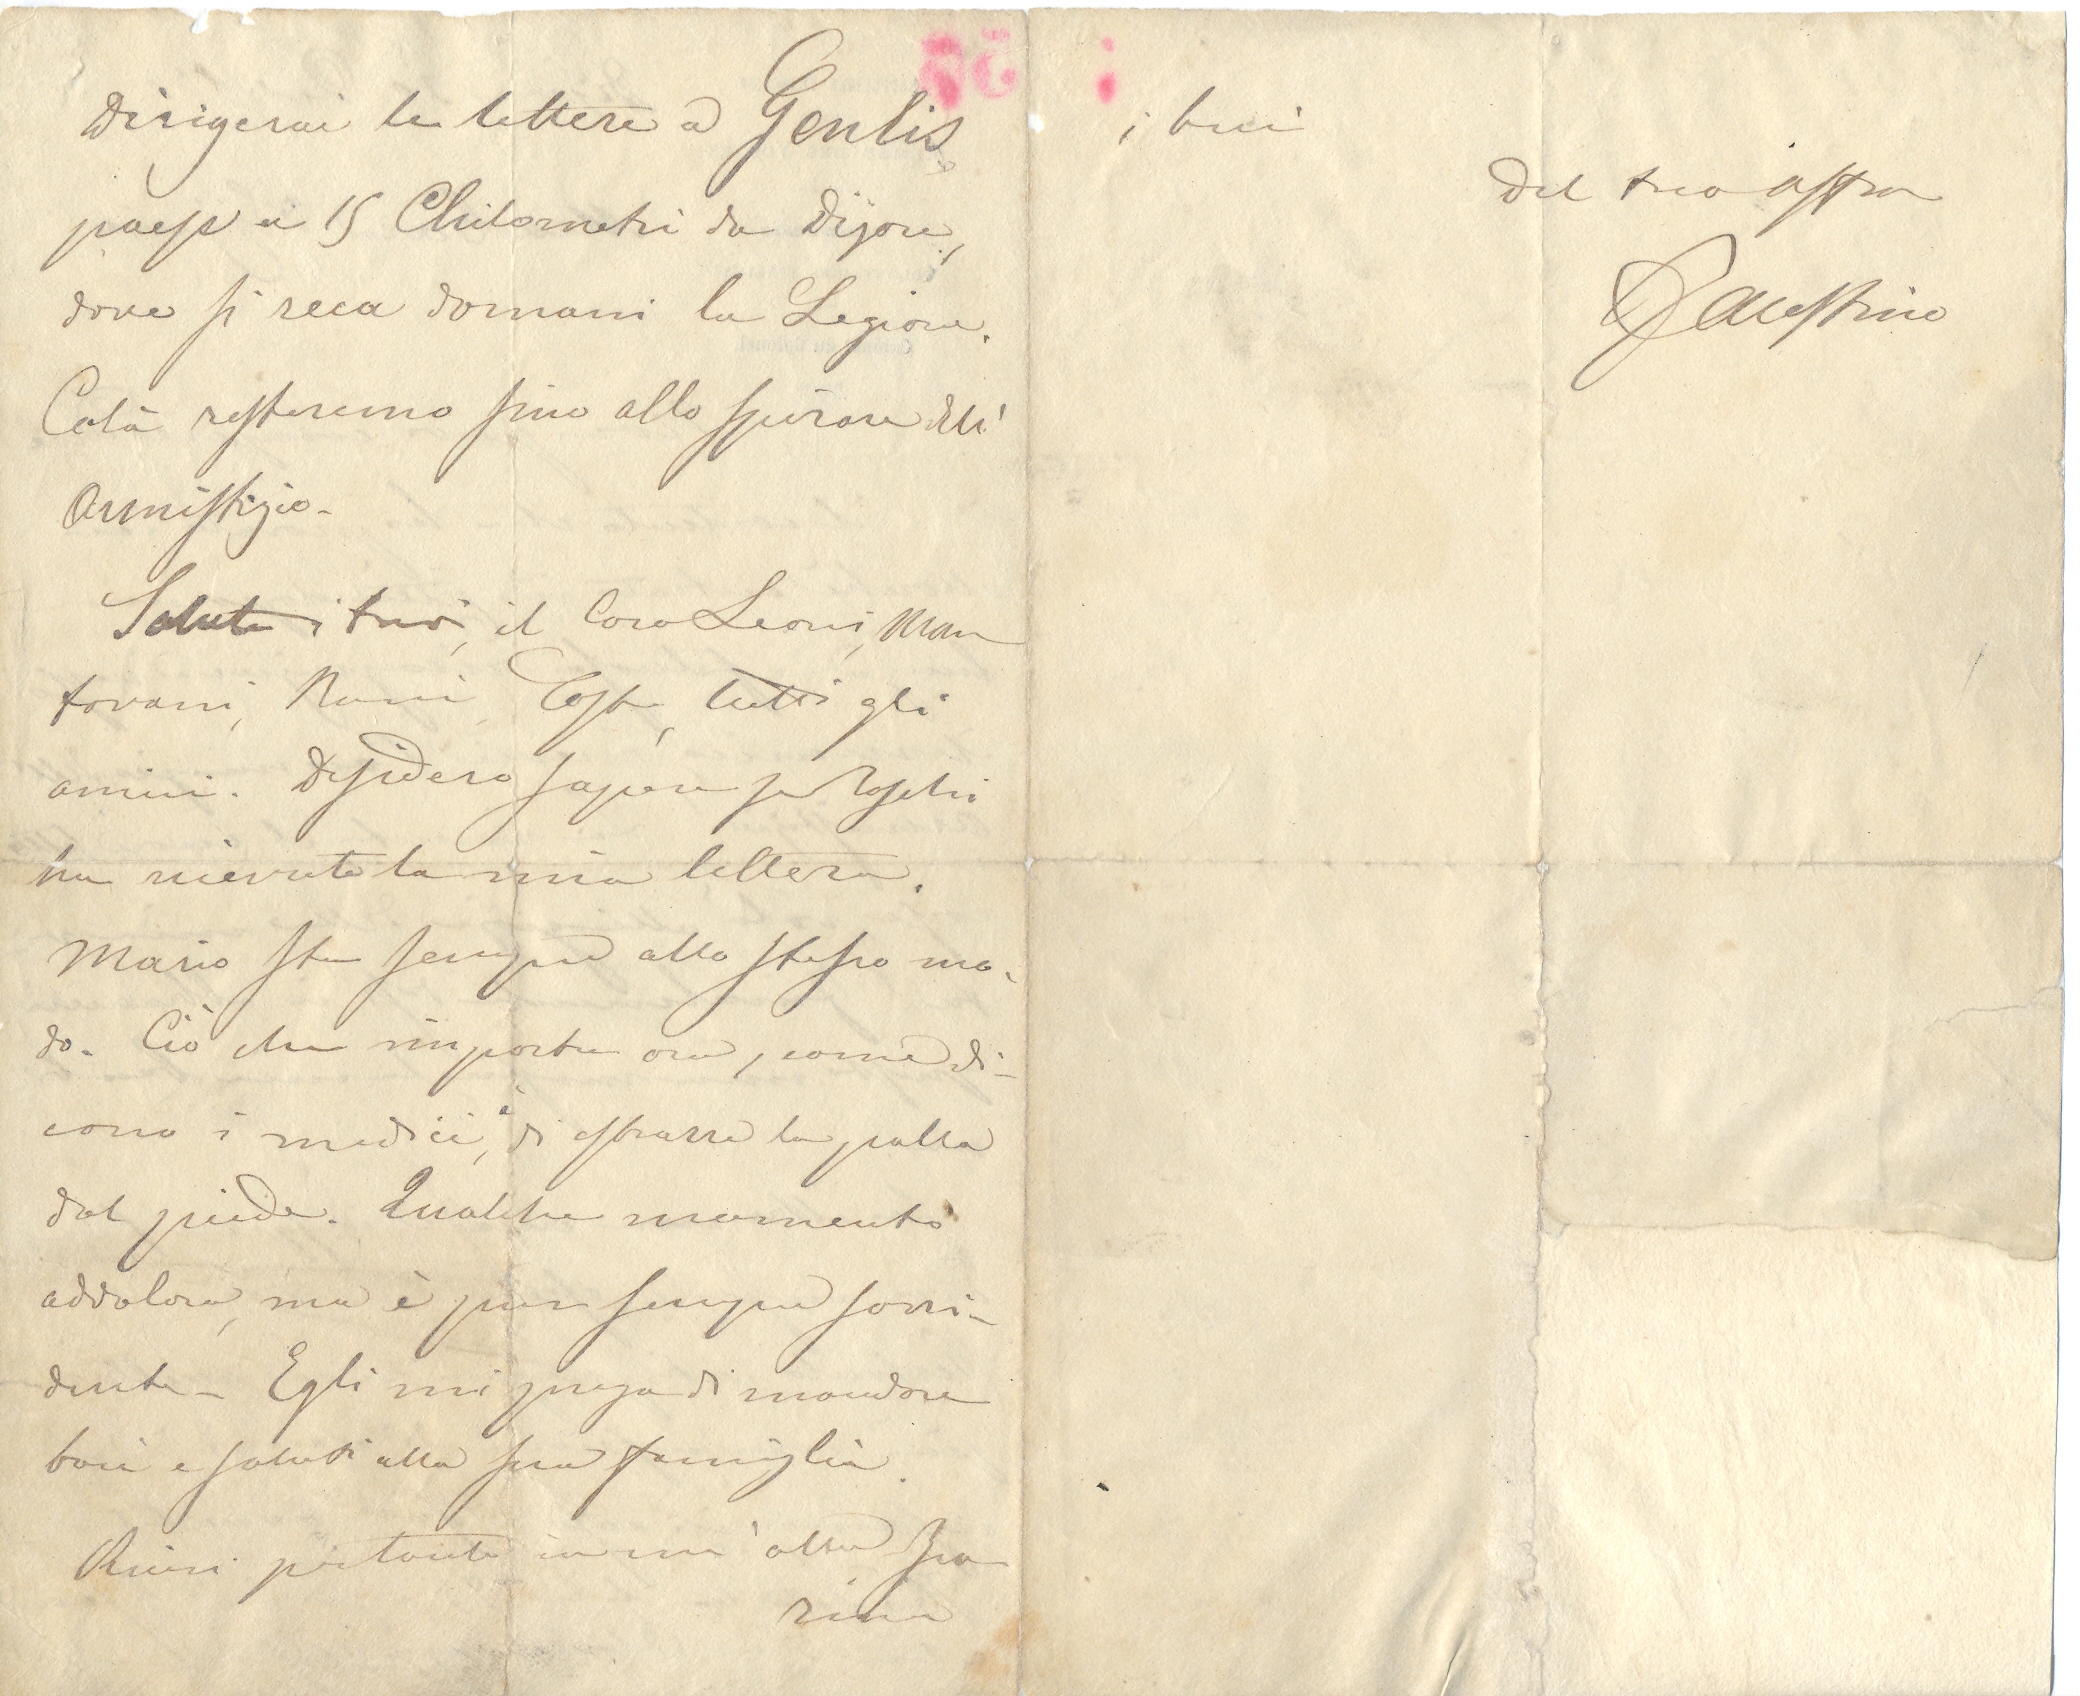 Dirigerai le lettere a Genlis
paese a 15 Chilometri da Dijone,
dove si reca domani la Legione.
Colà resteremo sino allo spirare dell'
Armistizio.
Saluta i tuoi, il Caro Leoni, Man
tovani, Costa, tutti gli
amici. Desidero sapere se
ha ricevuto la mia lettera.
Mario sta sempre allo stesso mo-
do. Ciò che importa ora, come di-
cono i medici, è di estrarre la palla
dal piede. Qualche momento
addolora, ma è pur sempre sorri-
dente - Egli mi prega di mandare
baci e saluti alla sua famiglia.
Ricevi pertanto in un'altra
i baci
Del tuo affmo